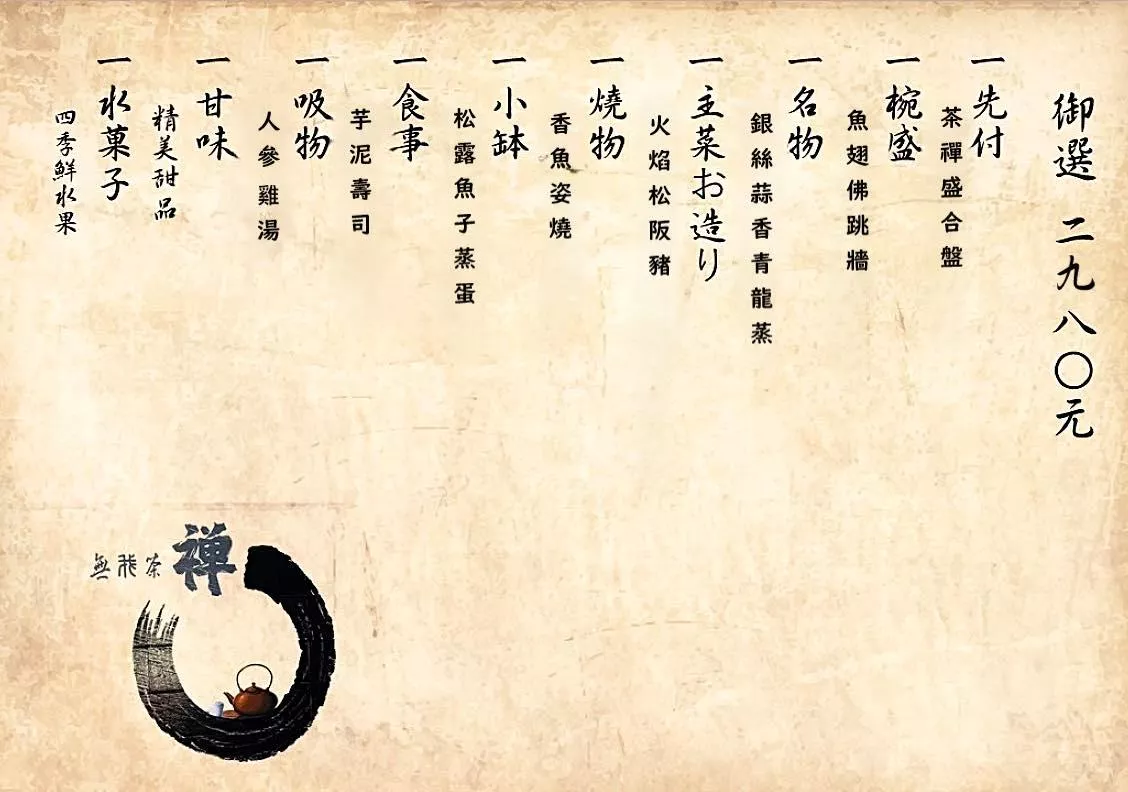 御選 二九八〇元
一先付
茶禪盛合盤
一椀盛
魚翅佛跳牆
一名物
銀絲蒜香青龍蒸
一主菜お造り
火焰松阪豬
一燒物
香魚姿燒
一小缽
松露魚子蒸蛋
一食事
芋泥壽司
一吸物
人參雞湯
一甘味
精美甜品
一水菓子
四季鮮水果
禅
茶
無